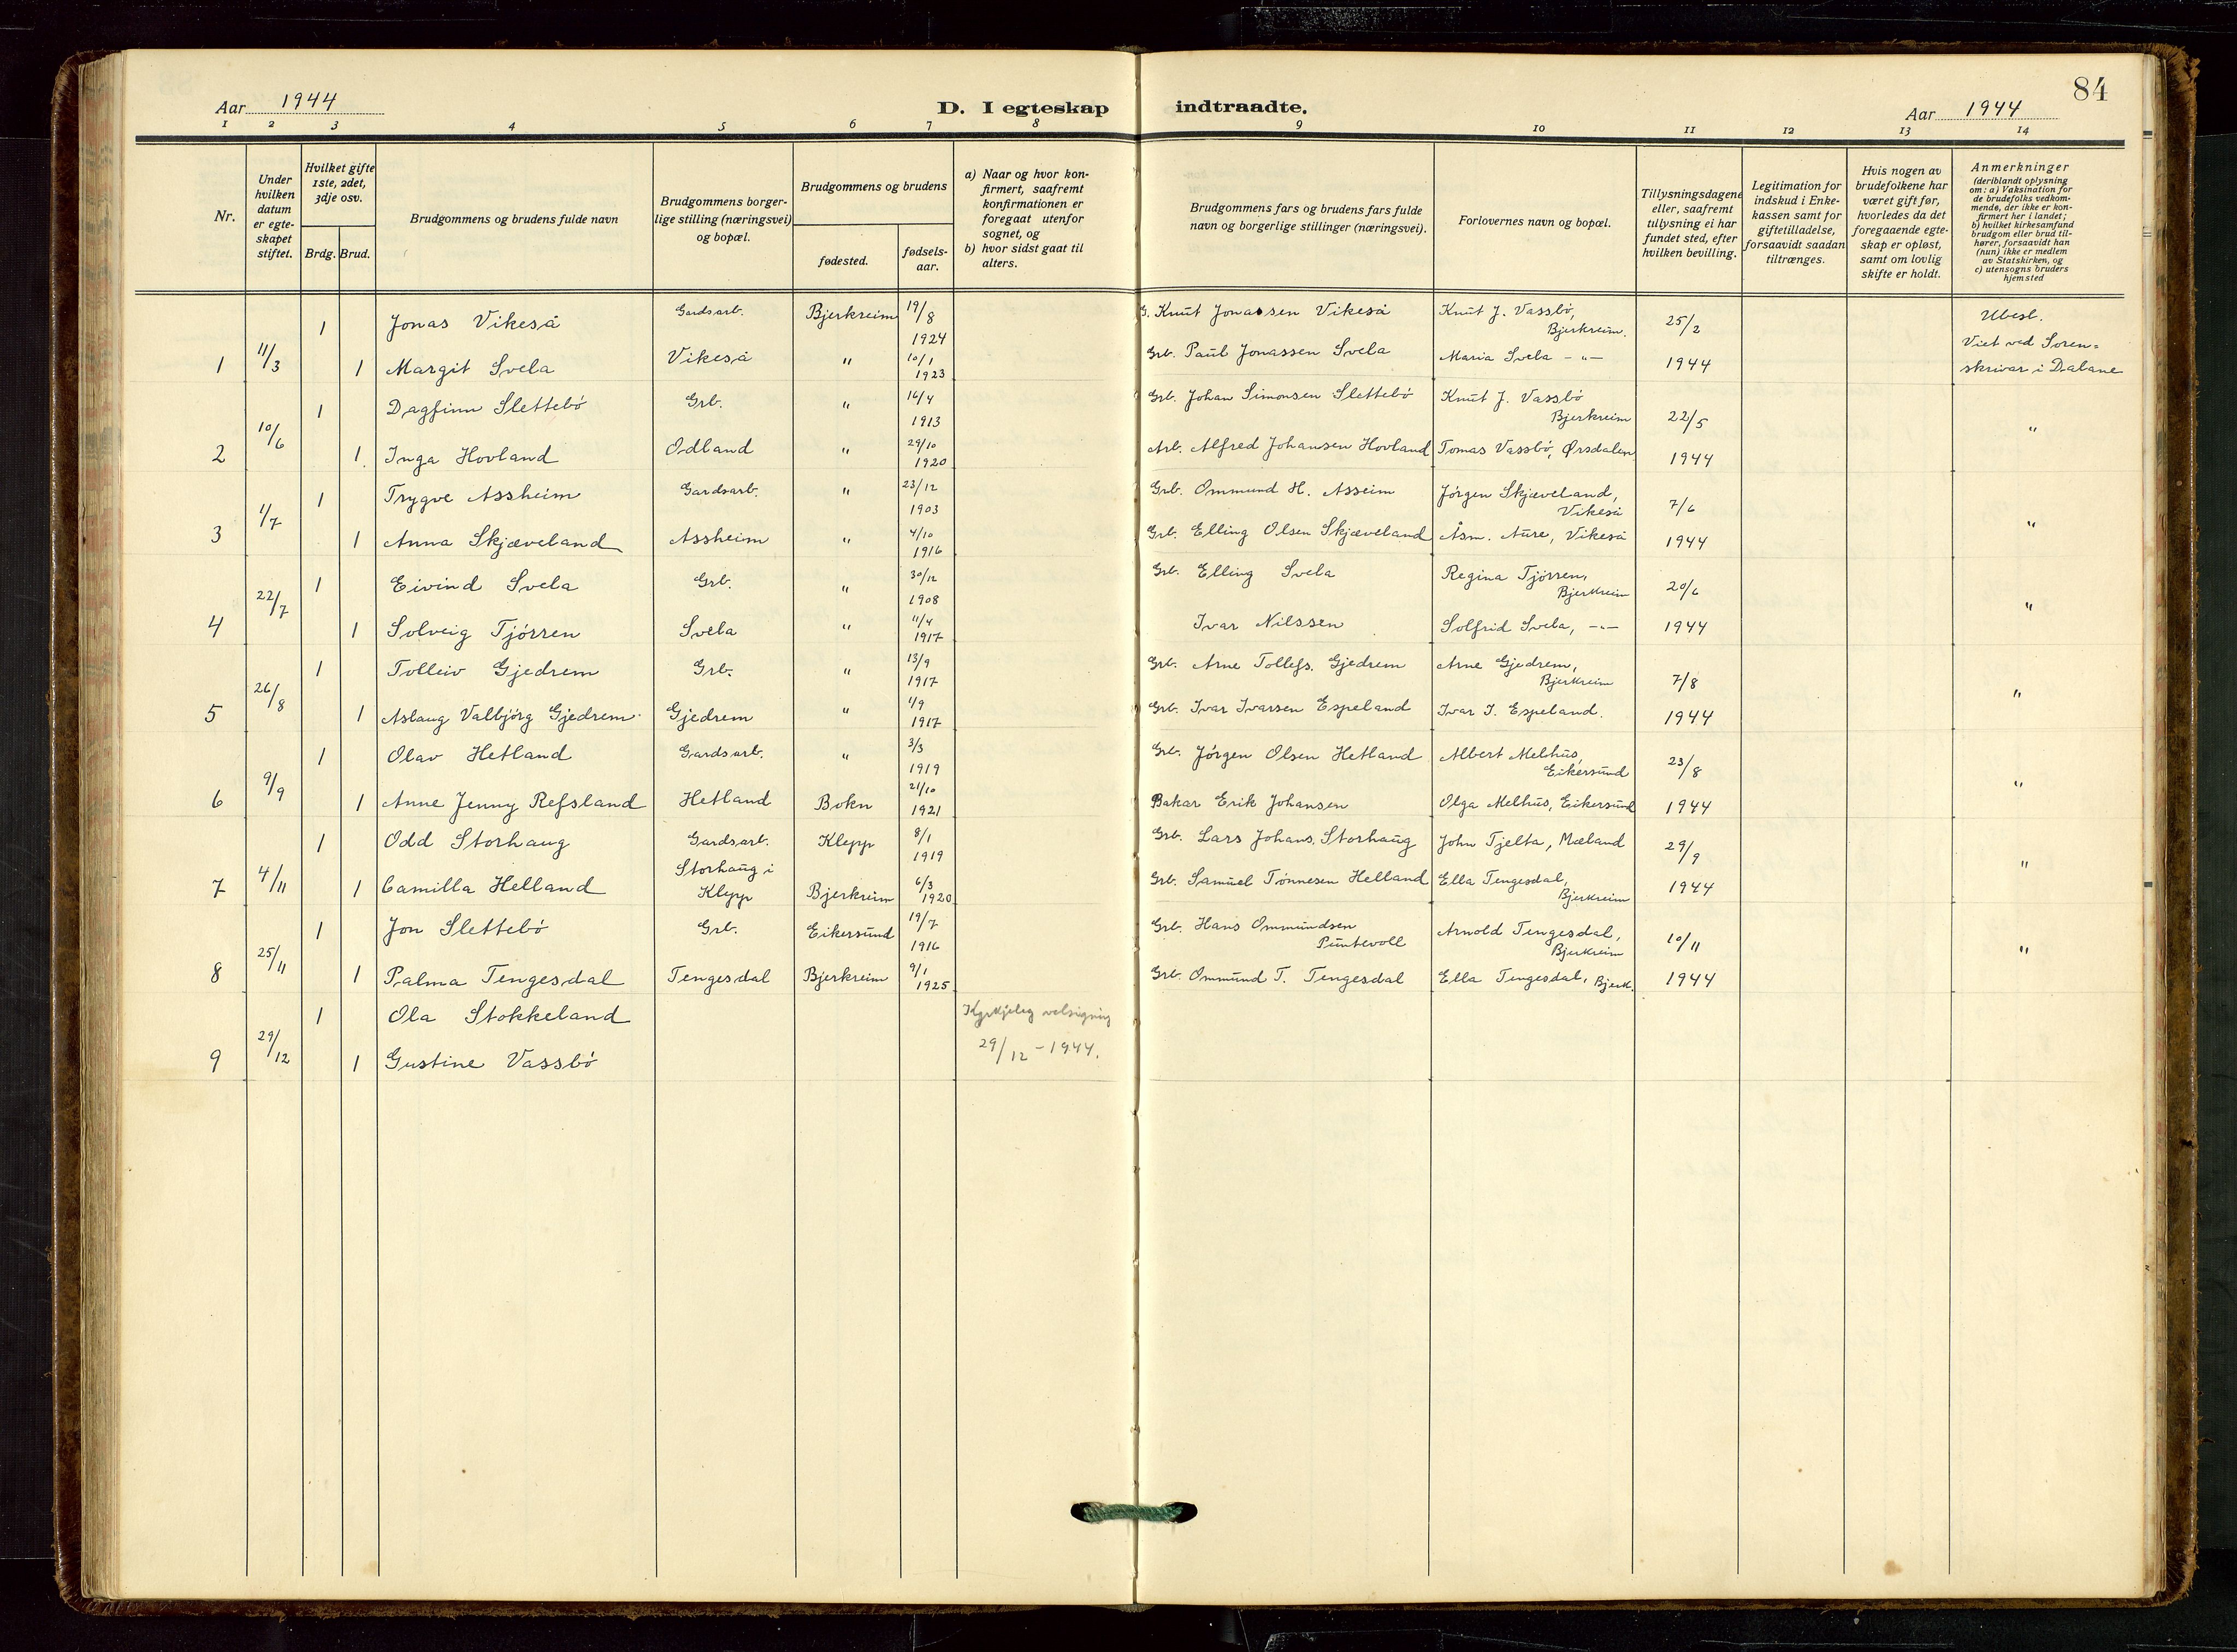 84
Aar 1944
D. I egteskap indtraadte.
Aar 1944
1 2 3 4 5 6 7 8 9 10 11 12 13 14
Nr.
Under hvilken datum er egte-skapet stiftet.
Hvilket gifte 1ste, 2det, 3dje osv.
Brdg. Brud.
Brudgommens og brudens fulde navn
Brudgommens borger-lige stilling (næringsvei) og bopæl.
Brudgommens og brudens
fødested.
fødsels-aar.
a) Naar og hvor kon-firmert, saafremt konfirmationen er foregaat utenfor sognet, og
b) hvor sidst gaat til alters.
Brudgommens fars og brudens fars fulde navn og borgerlige stillinger (næringsvei).
Forlovernes navn og bopæl.
Tillysningsdagene eller, saafremt tillysning ei har fundet sted, efter hvilken bevilling.
Legitimation for indskud i Enke-kassen samt for giftetilladelse, forsaavidt saadan tiltrænges.
Hvis nogen av brudefolkene har været gift før, hvorledes da det foregaaende egte-skap er opløst, samt om lovlig skifte er holdt.
Anmerkninger (deriblandt oplysning om: a) Vaksination for de brudefolks vedkom-mende, der ikke er kon-firmert her i landet; b) hvilket kirkesamfund brudgom eller brud til-hører, forsaavidt han (hun) ikke er medlem av Statskirken, og c) utensogns bruders hjemsted
1 Jonas Vikeså Gardsarb. Bjerkreim 19/8 1924 G. Knut Jonassen Vikeså Knut J. Vassbö, Bjerkreim. 25/2 Ubesl.
1 11/3 1 Margit Svela Vikeså " 10/1 1923 Grb. Paul Jonassen Svela Maria Svela -"- 1944 Viet ved Soren=skrivar i Dalane
1 Dagfinn Slettebö Grb. " 16/4 1913 Grb. Johan Simonsen Slettebö Knut J. Vassbö Bjerkreim 22/5
2 10/6 1 Inga Hovland Odland " 29/10 1920 Arb. Alfred Johansen Hovland Tomas Vassbö, Ørsdalen 1944 "
1 Trygve Assheim Gardsarb. " 23/12 1903 Grb. Ommund H. Asseim Jörgen Skjæveland, Vikeså 7/6
3 1/7 1 Anna Skjæveland Assheim " 4/10 1916 Grb. Elling Olsen Skjæveland Åsm. Aure, Vikeså 1944 "
1 Eivind Svela Grb. " 30/12 1908 Grb. Elling Svela Regina Tjörren, Bjerkreim 20/6
4 22/7 1 Solveig Tjörren Svela " 11/4 1917 Ivar Nilssen Solfrid Svela, -"- 1944 "
1 Tolleiv Gjedrem Grb. " 13/9 1917 Grb. Arne Tollefs. Gjedrem Arne Gjedrem, Bjerkreim 7/8
5 26/8 1 Aslaug Valbjörg Gjedrem Gjedrem " 1/9 1917 Grb. Ivar Ivarsen Espeland Ivar I. Espeland. 1944 "
1 Olav Hetland Gardsarb. " 3/3 1919 Grb. Jörgen Olsen Hetland Albert Melhus, Eikersund 23/8
6 9/9 1 Anne Jenny Refsland Hetland Bokn 21/10 1921 Bakar Erik Johansen Olga Melhus, Eikersund 1944 "
1 Odd Storhaug Gardsarb. Klepp 8/1 1919 Grb. Lars Johans. Storhaug John Tjelta, Mæland 29/9
7 4/11 1 Camilla Helland Storhaug i Klepp Bjerkreim 6/3 1920 Grb. Samuel Tönnesen Helland Ella Tengesdal, Bjerkreim 1944 "
1 Jon Slettebö Grb. Eikersund 19/7 1916 Grb. Hans Ommundsen Puntevoll Arnold Tengesdal, Bjerkreim 10/11
8 25/11 1 Palma Tengesdal Tengesdal Bjerkreim 9/1 1925 Grb. Ommund T. Tengesdal Ella Tengesdal, Bjerk. 1944 "
1 Ola Stokkeland Kyrkjeleg velsigning
9 29/12 1 Gustine Vassbö 29/12 - 1944.